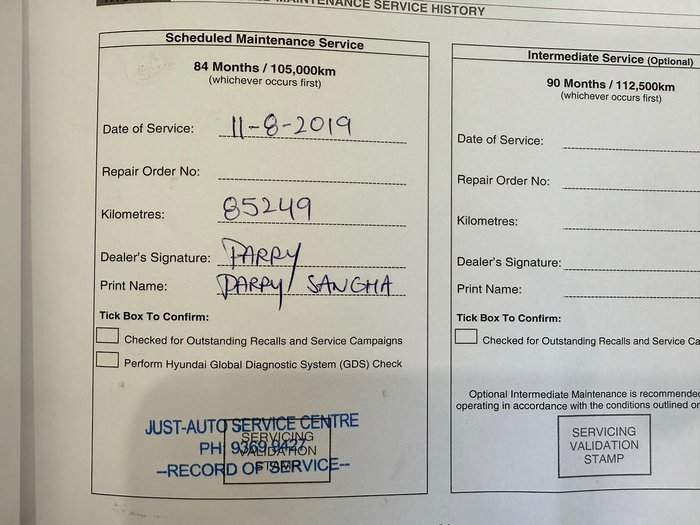 MAINTENANCE SERVICE HISTORY
Scheduled Maintenance Service
84 Months / 105,000km
(whichever occurs first)
Date of Service: 11-8-2019
Repair Order No:
Kilometres: 85249
Dealer's Signature: PARRY
Print Name: PARRY SANGHA
Tick Box To Confirm:
Checked for Outstanding Recalls and Service Campaigns
Perform Hyundai Global Diagnostic System (GDS) Check
JUST-AUTO SERVICE CENTRE
PH: 9369 9427
--RECORD OF SERVICE--
SERVICING
VALIDATION
STAMP
Intermediate Service (Optional)
90 Months / 112,500km
(whichever occurs first)
Date of Service:
Repair Order No:
Kilometres:
Dealer's Signature:
Print Name:
Tick Box To Confirm:
Checked for Outstanding Recalls and Service Ca
Optional Intermediate Maintenance is recommended
operating in accordance with the conditions outlined on
SERVICING
VALIDATION
STAMP